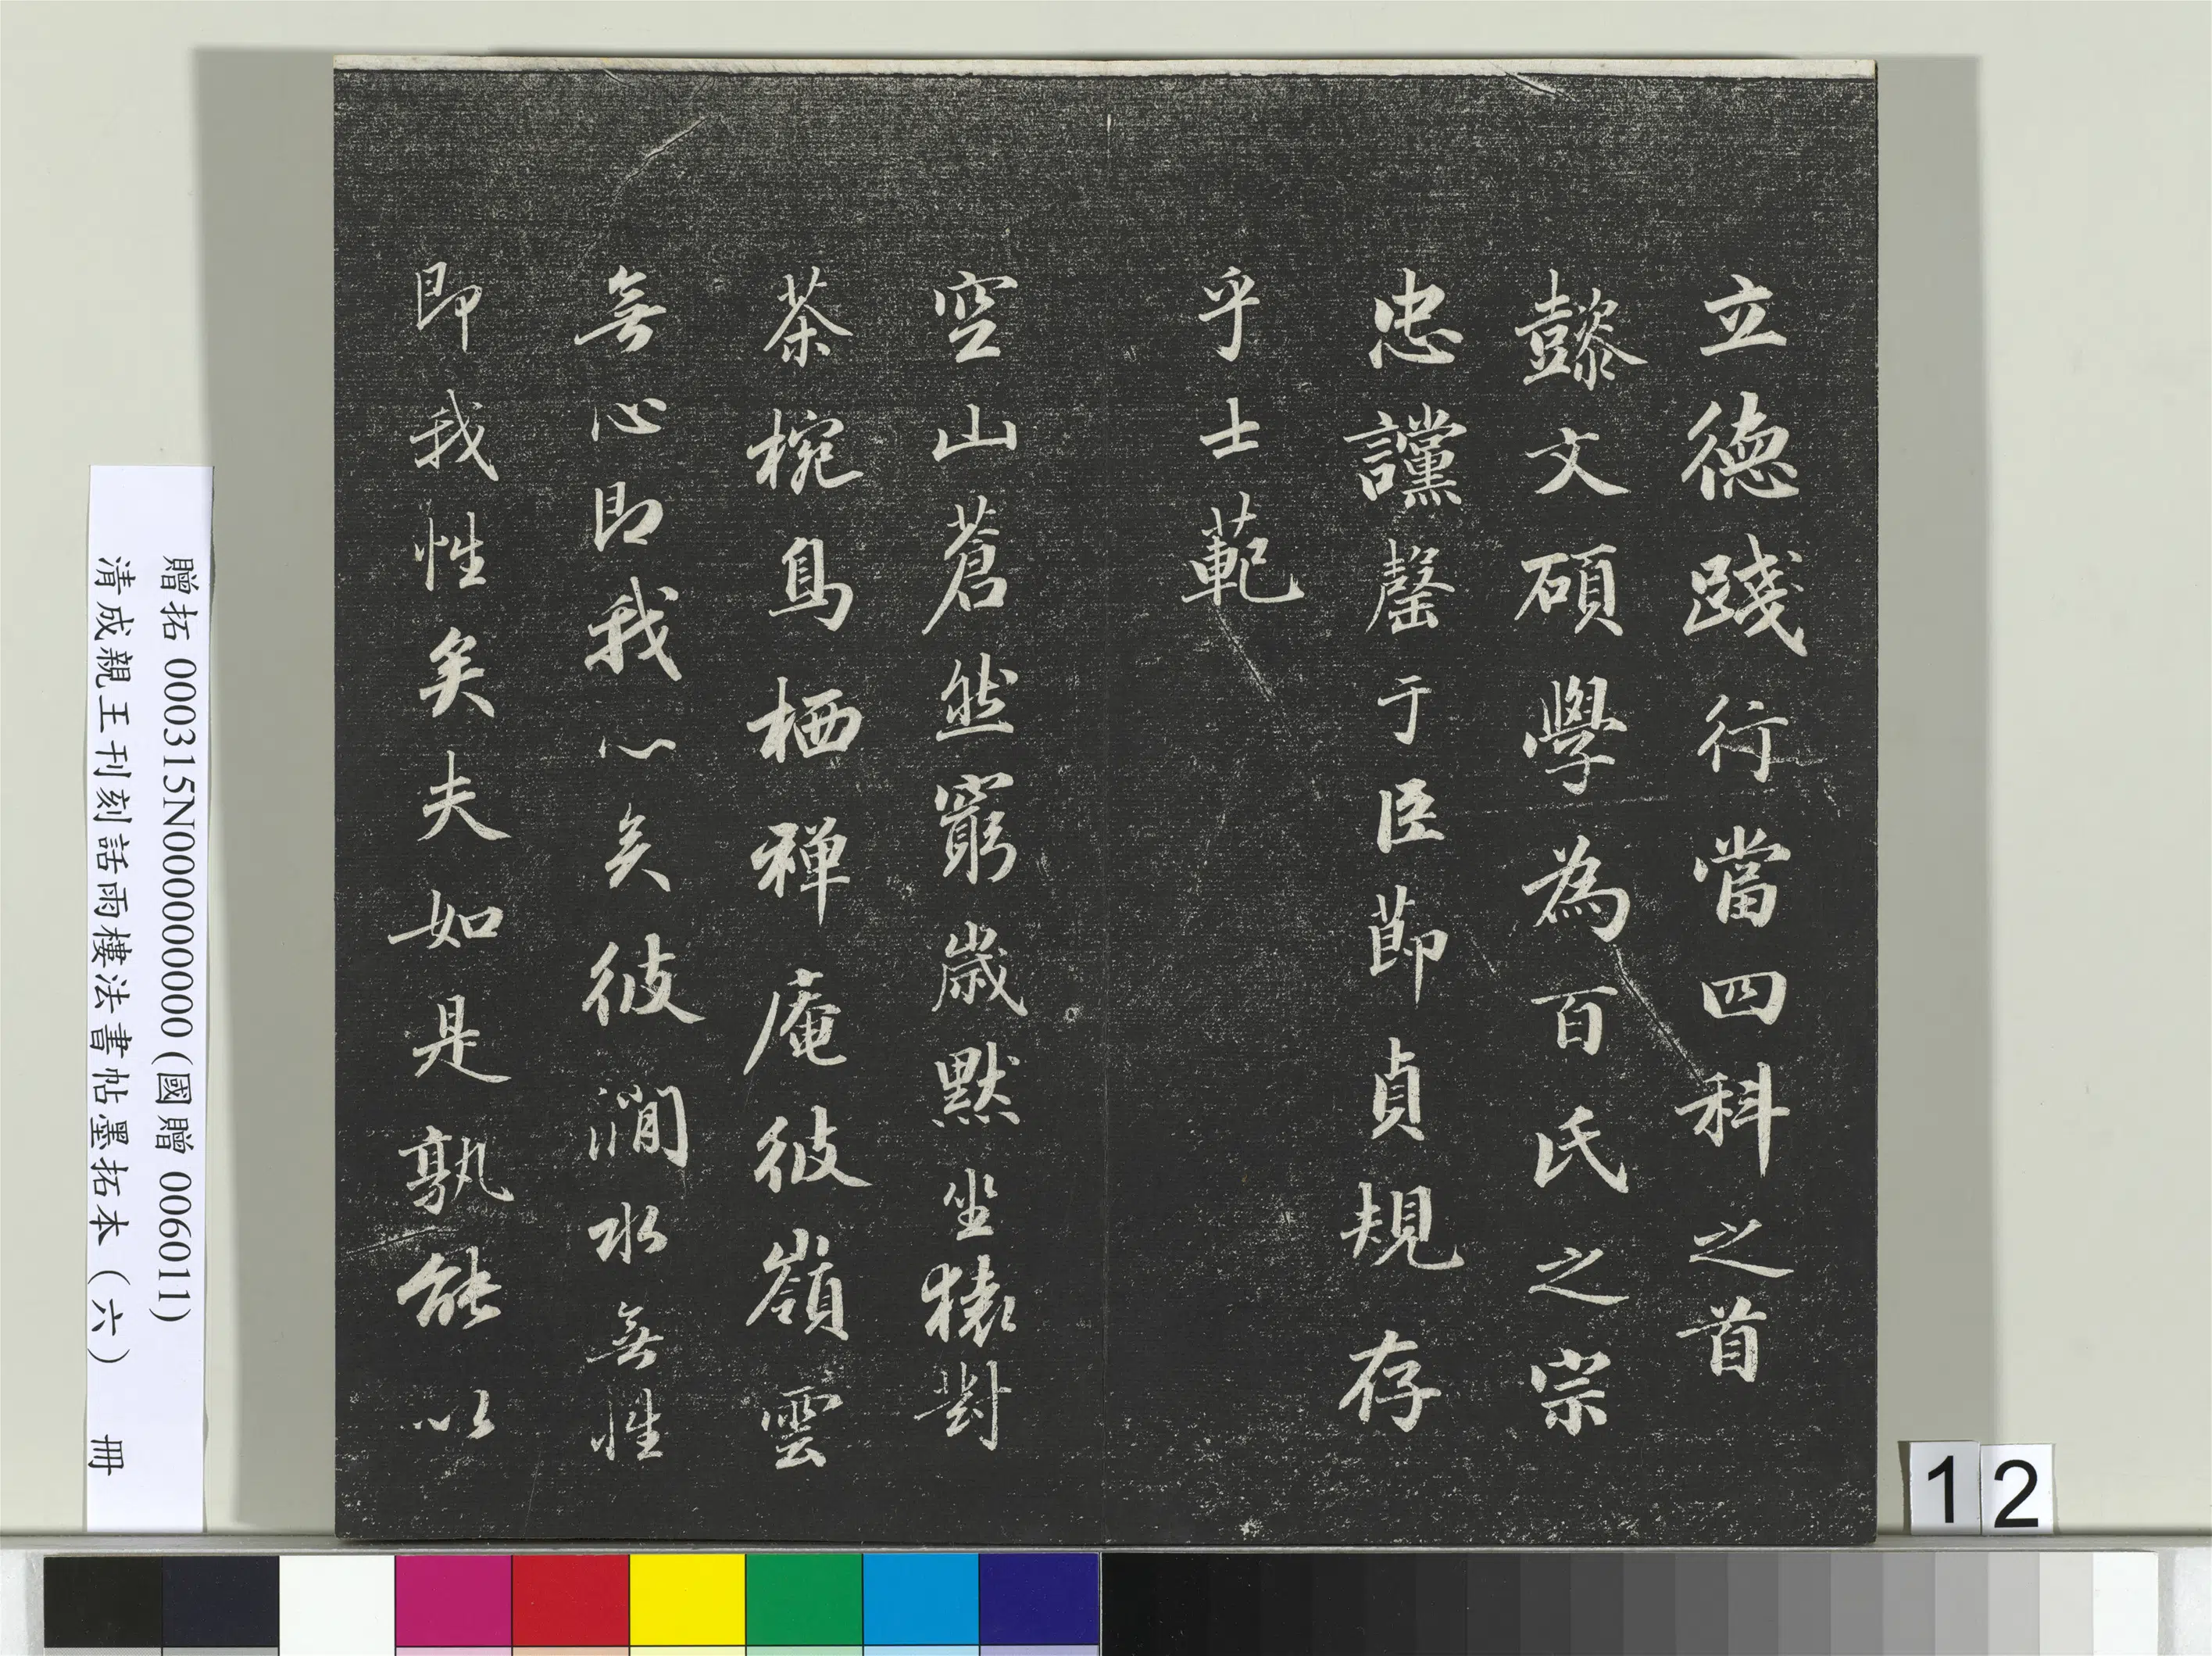 立德踐行當四科之首
懿文碩學為百氏之宗
忠讜罄于臣節貞規存
乎士範
空山蒼然窮歲默坐猿對
茶椀鳥栖禅庵彼嶺雲
無心即我心矣彼澗水無性
即我性矣夫如是孰能以
贈拓 000315N000000000 (國贈 006011)
清成親王刊刻話雨樓法書帖墨拓本(六) 冊
12